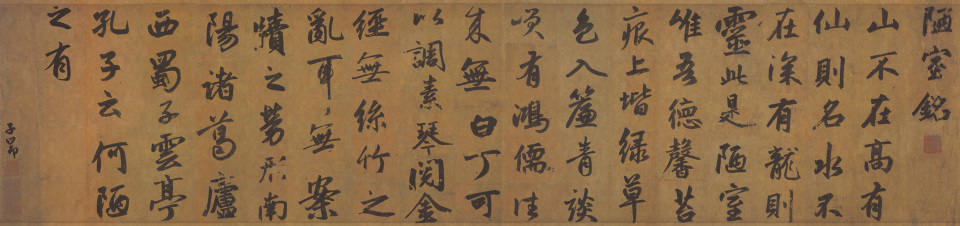 陋室銘
山不在高有
仙則名水不
在深有龍則
靈此是陋室
惟吾德馨苔
痕上堦緑草
色入簾青談
咲有鴻儒往
来無白丁可
以調素琴閱金
經無絲竹之
亂耳無案
牘之勞形南
陽諸葛廬
西蜀子雲亭
孔子云何陋
之有
子昂